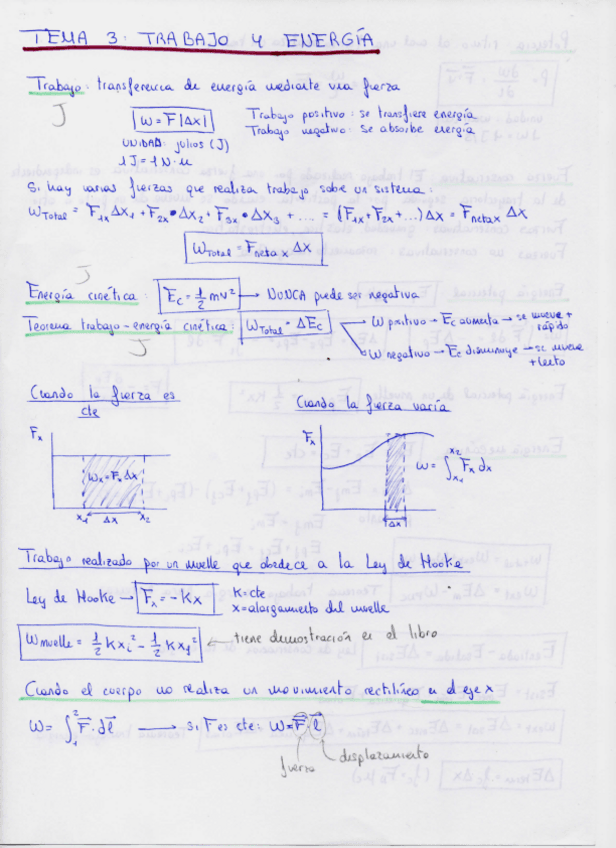 TEMA 3: TRABAJO Y ENERGÍA
Trabajo: transferencia de energía mediante una fuerza
J
W = F|Δx|
Trabajo positivo: se transfiere energía
Trabajo negativo: se absorbe energía
UNIDAD: julios (J)
1J = 1N·m
Si hay varias fuerzas que realiza trabajo sobre un sistema:
W Total = F1x Δx1 + F2x • Δx2 + F3x • Δx3 + .... = (F1x + F2x + ...) Δx = F neta x Δx
W Total = F neta x Δx
J
Energía cinética: Ec = 1/2 mv² → NUNCA puede ser negativa
Teorema trabajo-energía cinética: W Total = ΔEc
W positivo → Ec aumenta → se mueve + rápido
W negativo → Ec disminuye → se mueve + lento
J
Cuando la fuerza es cte
Cuando la fuerza varía
Fx
Wx = Fx Δx
x1 Δx x2
Fx
Δx
W = ∫x1 x2 Fx dx
Trabajo realizado por un muelle que obedece a la Ley de Hooke
Ley de Hooke → Fx = -Kx
K = cte
x = alargamiento del muelle
W muelle = 1/2 K xi² - 1/2 K xf² ← tiene demostración en el libro
Cuando el cuerpo no realiza un movimiento rectilíneo en el eje x
W = ∫1 2 F · dl → si F es cte: W = F · l
fuerza
desplazamiento